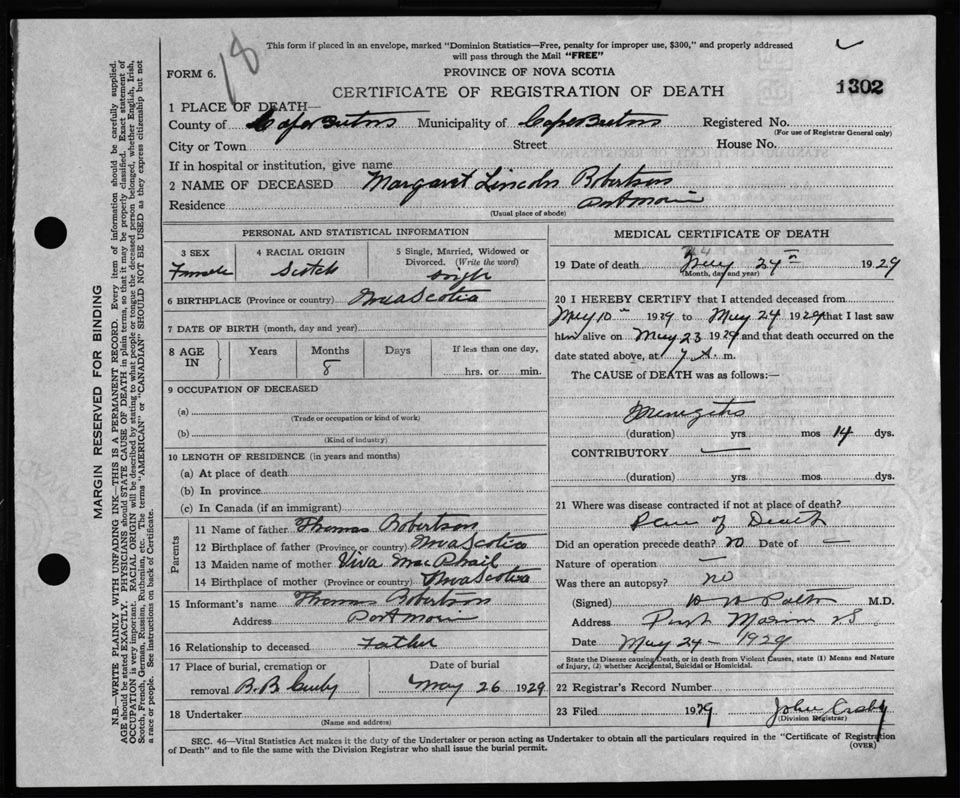 18
This form if placed in an envelope, marked "Dominion Statistics—Free, penalty for improper use, $300," and properly addressed
will pass through the Mail "FREE"
FORM 6.
PROVINCE OF NOVA SCOTIA
CERTIFICATE OF REGISTRATION OF DEATH
1302
1 PLACE OF DEATH—
County of Cape Breton Municipality of Cape Breton Registered No.
(For use of Registrar General only)
City or Town Street House No.
If in hospital or institution, give name
2 NAME OF DECEASED Margaret Lincoln Robertson
Residence Port Morien
(Usual place of abode)
PERSONAL AND STATISTICAL INFORMATION
3 SEX
Female
4 RACIAL ORIGIN
Scotch
5 Single, Married, Widowed or
Divorced. (Write the word)
Single
6 BIRTHPLACE (Province or country) Nova Scotia
7 DATE OF BIRTH (month, day and year)
8 AGE
IN
Years
Months
8
Days
If less than one day,
hrs. or min.
9 OCCUPATION OF DECEASED
(a)
(Trade or occupation or kind of work)
(b)
(Kind of industry)
10 LENGTH OF RESIDENCE (in years and months)
(a) At place of death
(b) In province
(c) In Canada (if an immigrant)
Parents
11 Name of father Thomas Robertson
12 Birthplace of father (Province or country) Nova Scotia
13 Maiden name of mother Viva MacPhail
14 Birthplace of mother (Province or country) Nova Scotia
15 Informant's name Thomas Robertson
Address Port Morien
16 Relationship to deceased Father
17 Place of burial, cremation or
removal B.B.
Date of burial
May 26 1929
18 Undertaker
(Name and address)
MEDICAL CERTIFICATE OF DEATH
19 Date of death May 24th 1929
(Month, day and year)
20 I HEREBY CERTIFY that I attended deceased from
May 10th 1929 to May 24 1929 that I last saw
him alive on May 23 1929 and that death occurred on the
date stated above, at 7 A. m.
The CAUSE of DEATH was as follows:—
(duration) yrs mos 14 dys.
CONTRIBUTORY
(duration) yrs. mos. dys.
21 Where was disease contracted if not at place of death?
Place of Death
Did an operation precede death? no Date of —
Nature of operation —
Was there an autopsy? no
(Signed) M.D.
Address Port Morien N.S.
Date May 24 - 1929
State the Disease causing Death, or in death from Violent Causes, state (1) Means and Nature
of Injury, (2) whether Accidental, Suicidal or Homicidal.
22 Registrar's Record Number
23 Filed 1929 John Crosby
(Division Registrar)
SEC. 46—Vital Statistics Act makes it the duty of the Undertaker or person acting as Undertaker to obtain all the particulars required in the "Certificate of Registration
of Death" and to file the same with the Division Registrar who shall issue the burial permit.
(OVER)
MARGIN RESERVED FOR BINDING
N.B.—WRITE PLAINLY WITH UNFADING INK—THIS IS A PERMANENT RECORD. Every item of information should be carefully supplied.
AGE should be stated EXACTLY. PHYSICIANS should STATE CAUSE OF DEATH in plain terms, so that it may be properly classified. Exact statement of
OCCUPATION is very important. RACIAL ORIGIN will be described by stating to what people or tongue the deceased person belonged, whether English, Irish,
Scotch, French, German, Russian, Ruthenian, etc. The terms "AMERICAN" or "CANADIAN" SHOULD NOT BE USED as they express citizenship but not
a race or people. See instructions on back of Certificate.